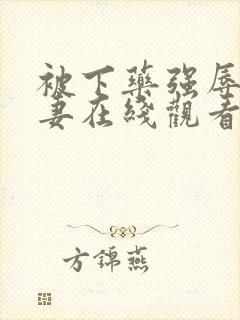 被下藥强辱
妻在綫觀看
方錦燕